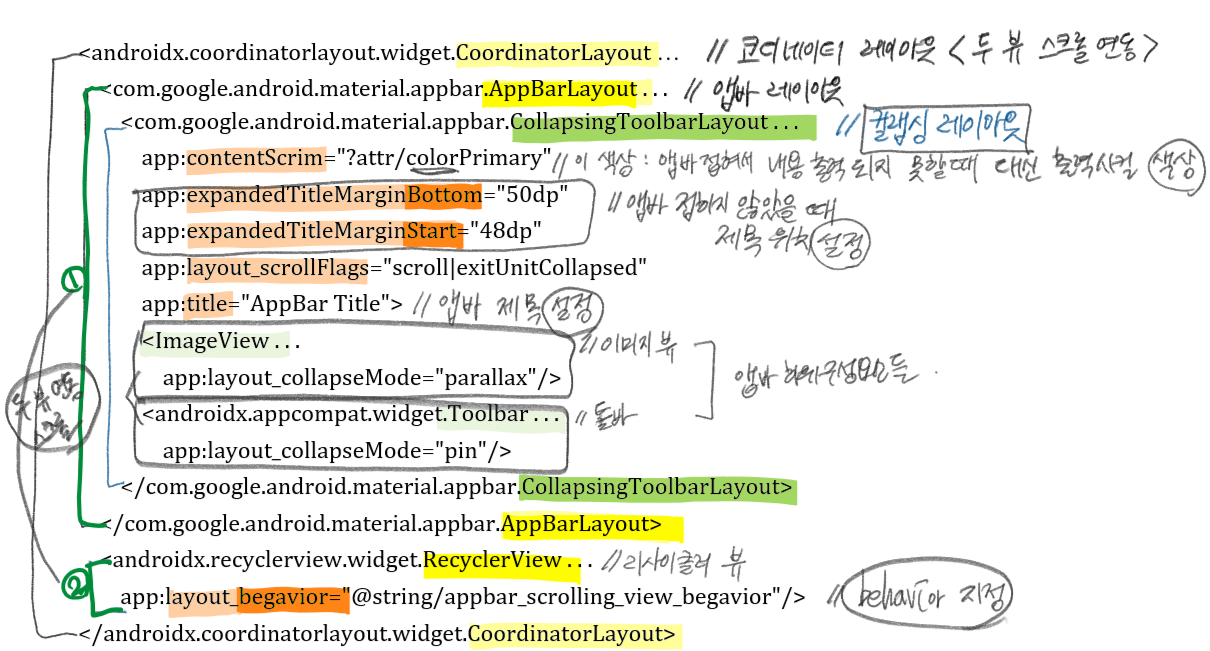 <androidx.coordinatorlayout.widget.CoordinatorLayout ... // 코디네이터 레이아웃 < 두 뷰 스크롤 연동 >
<com.google.android.material.appbar.AppBarLayout ... // 앱바 레이아웃
<com.google.android.material.appbar.CollapsingToolbarLayout ... // 컬랩싱 레이아웃
app:contentScrim="?attr/colorPrimary" // 이 색상 : 앱바 접혀서 내용 출력 되지 못할때 대신 출력시킬 색상
app:expandedTitleMarginBottom="50dp" // 앱바 접히지 않았을 때
app:expandedTitleMarginStart="48dp" 제목 위치 설정
app:layout_scrollFlags="scroll|exitUnitCollapsed"
①
app:title="AppBar Title"> // 앱바 제목 설정
<ImageView ... // 이미지 뷰
app:layout_collapseMode="parallax"/> 앱바 하위구성요소들
두 뷰 연동
<androidx.appcompat.widget.Toolbar ... // 툴바
app:layout_collapseMode="pin"/>
</com.google.android.material.appbar.CollapsingToolbarLayout>
</com.google.android.material.appbar.AppBarLayout>
<androidx.recyclerview.widget.RecyclerView ... // 리사이클러 뷰
②
app:layout_begavior="@string/appbar_scrolling_view_begavior"/> // behavior 지정
</androidx.coordinatorlayout.widget.CoordinatorLayout>